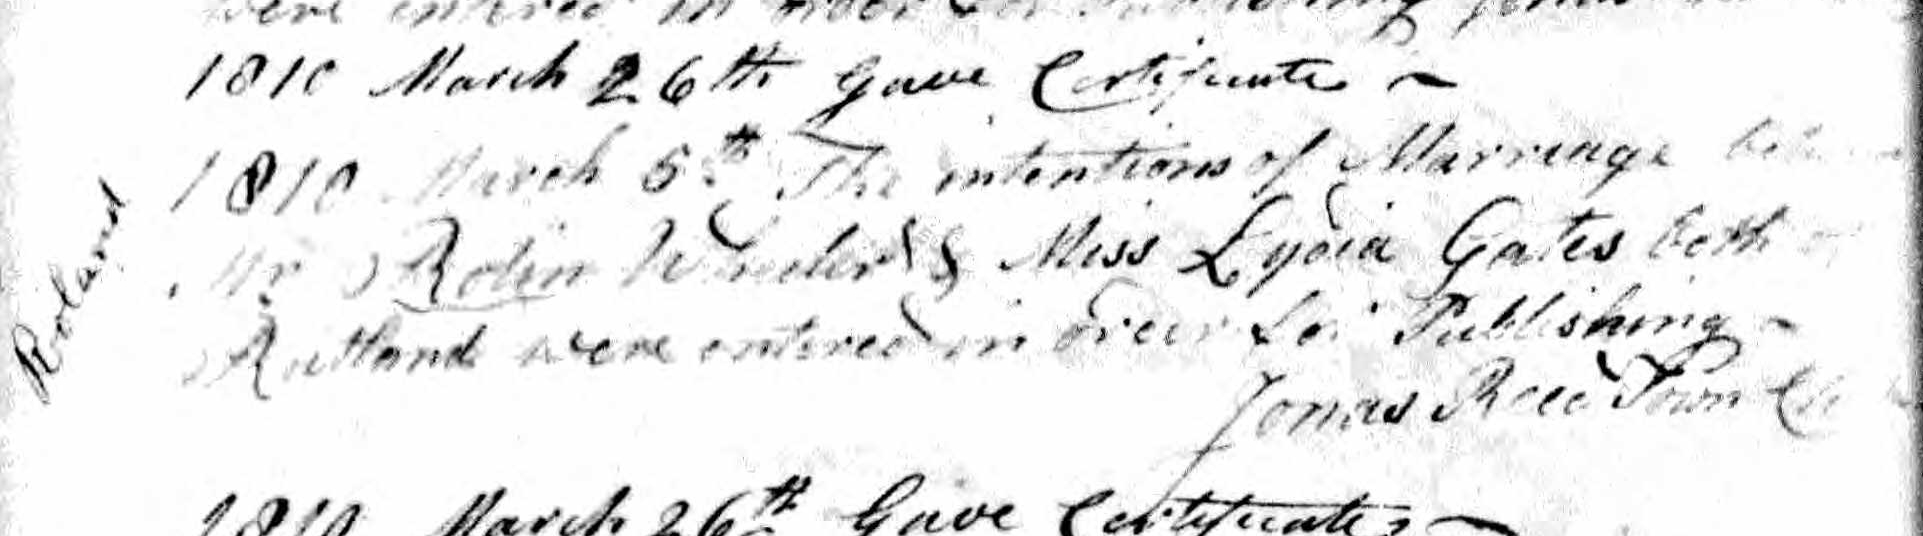 were entered in order for Publishing Jonas
1810 March 26th Gave Certificate ~
1810 March 5th The intentions of Marriage
Roland
Mr Rolin Wheeler & Miss Lydia Gates both of
Rutland were entered in order for Publishing ~
Jonas Reed Town
1810 March 26th Gave Certificate ~